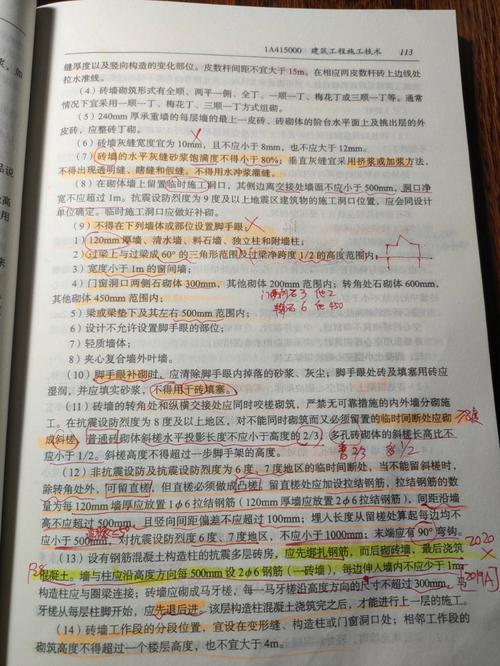 1A415000 建筑工程施工技术 113
缝厚度以及竖向构造的变化部位。皮数杆间距不宜大于15m。在相应两皮数杆砖上边线处
拉水准线。
（4）砖墙砌筑形式有全顺、两平一侧、全丁、一顺一丁、梅花丁或三顺一丁等。通常
情况下宜采用一顺一丁、梅花丁、三顺一丁方式组砌。
（5）240mm厚承重墙的每层墙的最上一皮砖、砖砌体的阶台水平面上及挑出层的外
皮砖，应整砖丁砌。
（6）砖墙灰缝宽度宜为10mm，且不应小于8mm，也不应大于12mm。
（7）砖墙的水平灰缝砂浆饱满度不得小于80%；垂直灰缝宜采用挤浆或加浆方法，
不得出现透明缝、瞎缝和假缝。不得用水冲浆灌缝。
（8）在砌体墙上留置临时施工洞口，其侧边离交接处墙面不应小于500mm，洞口净
宽不应超过1m。抗震设防烈度为9度及以上地震区建筑物的施工洞口位置，应会同设计
单位确定。临时施工洞口应做好补砌。
（9）不得在下列墙体或部位设置脚手眼：
1）120mm厚墙、清水墙、料石墙、独立柱和附墙柱；
2）过梁上与过梁成60°的三角形范围及过梁净跨度1/2的高度范围内；
3）宽度小于1m的窗间墙；
4）门窗洞口两侧石砌体300mm，其他砌体200mm范围内；转角处石砌体600mm，
其他砌体450mm范围内；
5）梁或梁垫下及其左右500mm范围内；
6）设计不允许设置脚手眼的部位；
7）轻质墙体；
8）夹心复合墙外叶墙。
（10）脚手眼补砌时，应清除脚手眼内掉落的砂浆、灰尘；脚手眼处砖及填塞用砖应
湿润，并应填实砂浆，不得用干砖填塞。
（11）砖墙的转角处和纵横交接处应同时咬槎砌筑，严禁无可靠措施的内外墙分砌施
工。在抗震设防烈度为8度及以上地区，对不能同时砌筑而又必须留置的临时间断处应砌
成斜槎，普通砖砌体斜槎水平投影长度不应小于高度的2/3，多孔砖砌体的斜槎长高比不
应小于1/2。斜槎高度不得超过一步脚手架的高度。
（12）非抗震设防及抗震设防烈度为6度、7度地区的临时间断处，当不能留斜槎时，
除转角处外，可留直槎，但直槎必须做成凸槎。留直槎处应加设拉结钢筋，拉结钢筋的数
量为每120mm墙厚应放置1φ6拉结钢筋（120mm厚墙应放置2φ6拉结钢筋），间距沿墙
高不应超过500mm，且竖向间距偏差不应超过100mm；埋入长度从留槎处算起每边均不
应小于500mm，对抗震设防烈度6度、7度地区，不应小于1000mm；末端应有90°弯钩。
（13）设有钢筋混凝土构造柱的抗震多层砖房，应先绑扎钢筋，而后砌砖墙，最后浇筑
混凝土。墙与柱应沿高度方向每500mm设2φ6钢筋（一砖墙），每边伸入墙内不应少于1m；
构造柱应与圈梁连接；砖墙应砌成马牙槎，每一马牙槎沿高度方向的尺寸不超过300mm，
马牙槎从每层柱脚开始，应先退后进。该层构造柱混凝土浇筑完之后，才能进行上一层的施工。
（14）砖墙工作段的分段位置，宜设在变形缝、构造柱或门窗洞口处；相邻工作段的
砌筑高度不得超过一个楼层高度，也不宜大于4m。
2020